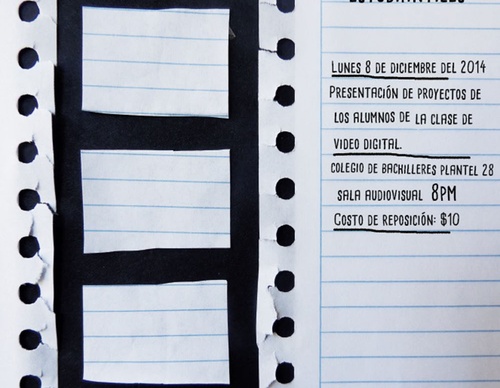 LUNES 8 DE DICIEMBRE DEL 2014
PRESENTACIÓN DE PROYECTOS DE
LOS ALUMNOS DE LA CLASE DE
VIDEO DIGITAL.
COLEGIO DE BACHILLERES PLANTEL 28
SALA AUDIOVISUAL 8PM
COSTO DE REPOSICIÓN: $10